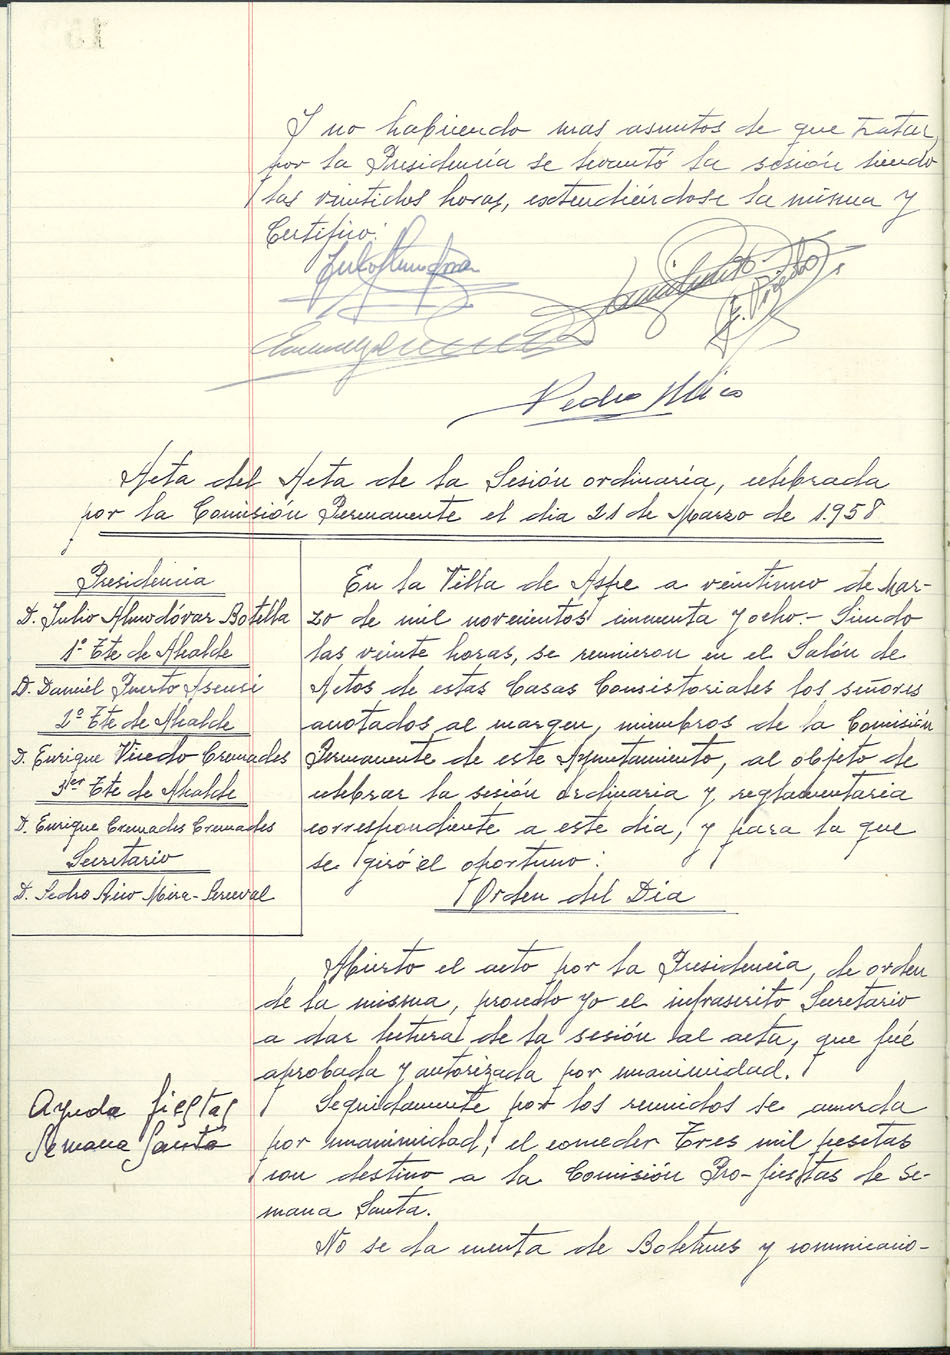 Y no habiendo mas asuntos de que tratar,
por la Presidencia se levantó la sesión siendo
las veintidos horas, extendiéndose la misma y
Certifico:
Pedro Rico
Acta del Acta de la Sesión ordinaria, celebrada
por la Comisión Permanente el dia 21 de Marzo de 1.958
Presidencia
D. Julio Almodóvar Botella
1º Tte de Alcalde
D. Daniel Puerto Asensi
2º Tte de Alcalde
D. Enrique Vicedo Cremades
3er Tte de Alcalde
D. Enrique Cremades Cremades
Secretario
D. Pedro Rico Mira-Perceval
En la Villa de Aspe a veintiuno de Mar-
zo de mil novecientos cincuenta y ocho.- Siendo
las veinte horas, se reunieron en el Salón de
Actos de estas Casas Consistoriales los señores
anotados al margen, miembros de la Comisión
Permanente de este Ayuntamiento, al objeto de
celebrar la sesión ordinaria y reglamentaria
correspondiente a este dia, y para la que
se giró el oportuno:
Orden del Dia
Abierto el acto por la Presidencia, de orden
de la misma, procedo yo el infrascrito Secretario
a dar lectura de la sesión al acta, que fué
aprobada y autorizada por unanimidad.
Ayuda fiestas
Semana Santa
Seguidamente por los reunidos se acuerda
por unanimidad, el conceder Tres mil pesetas
con destino a la Comisión Pro-fiestas de Se-
mana Santa.
No se da cuenta de Boletines y comunicacio-